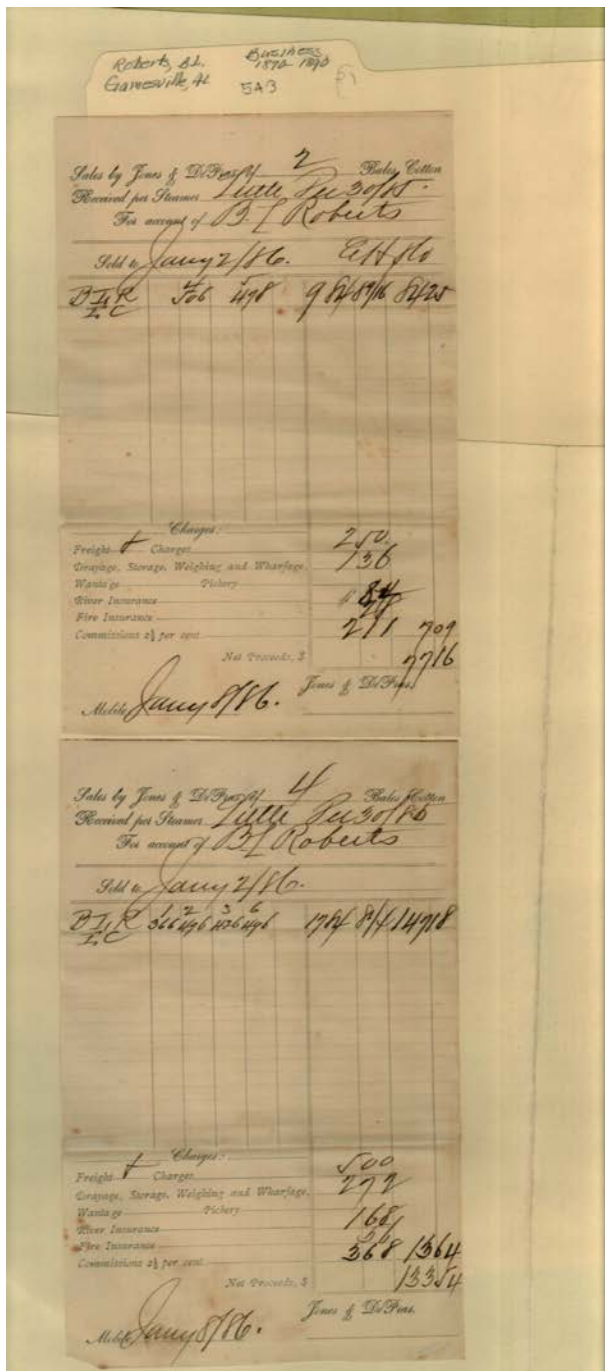 Roberts, B.L. Business
Gainesville, AL 1870-1890
5A3
Sales by Jones & DePras of 2 Bales Cotton
Received per Steamer Dec 30/85.
For account of B L Roberts
Sold to Jany 2/86.
B L R 506 498 9 84 8 9/16 84 25
I. C
Charges:
Freight & Charges 2 50
Drayage, Storage, Weighing and Wharfage, 1 36
Wantage Pickery
River Insurance 84
Fire Insurance 28
Commissions 2½ per cent 2 11 7 09
Net Proceeds, $ 77 16
Mobile Jany 8/86. Jones & DePras.
Sales by Jones & DePras of 4 Bales Cotton
Received per Steamer Dec 30/85
For account of B L Roberts
Sold to Jany 2/86.
1 2 3 6
B L R 366 496 426 496 17 84 8 1/4 147 18
I. C
Charges:
Freight & Charges 5 00
Drayage, Storage, Weighing and Wharfage, 2 72
Wantage Pickery
River Insurance 1 68
Fire Insurance
Commissions 2½ per cent 3 68 13 64
Net Proceeds, $ 133 54
Mobile Jany 8/86. Jones & DePras.